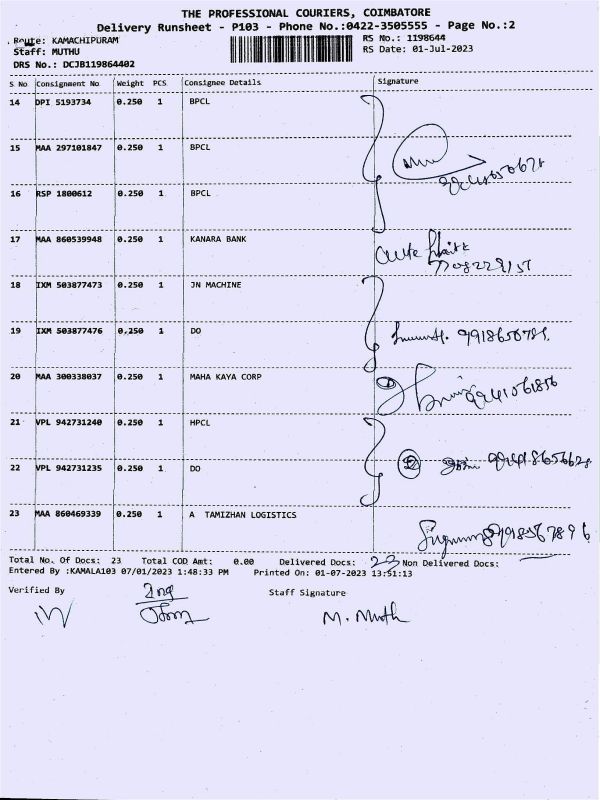 THE PROFESSIONAL COURIERS, COIMBATORE
Delivery Runsheet - P103 - Phone No.:0422-3505555 - Page No.:2
Route: KAMACHIPURAM
Staff: MUTHU
DRS No.: DCJB119864402
RS No.: 1198644
RS Date: 01-Jul-2023
S No Consignment No Weight PCS Consignee Details Signature
14 DPI 5193734 0.250 1 BPCL
15 MAA 297101847 0.250 1 BPCL
16 RSP 1800612 0.250 1 BPCL
17 MAA 860539948 0.250 1 KANARA BANK
18 IXM 503877473 0.250 1 JN MACHINE
19 IXM 503877476 0.250 1 DO
20 MAA 300338037 0.250 1 MAHA KAYA CORP
21 VPL 942731240 0.250 1 HPCL
22 VPL 942731235 0.250 1 DO
23 MAA 860469339 0.250 1 A TAMIZHAN LOGISTICS
Total No. Of Docs: 23 Total COD Amt: 0.00 Delivered Docs: 23 Non Delivered Docs:
Entered By :KAMALA103 07/01/2023 1:48:33 PM Printed On: 01-07-2023 13:51:13
Verified By Staff Signature
M. Muth